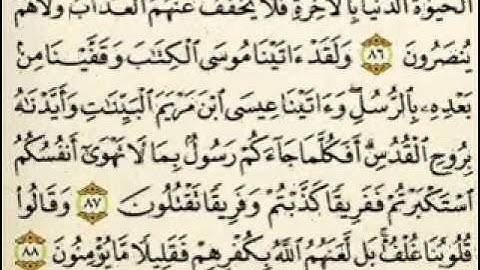 الْحَيَوٰةَ الدُّنْيَا بِالْآخِرَةِ فَلَا يُخَفَّفُ عَنْهُمُ الْعَذَابُ وَلَا هُمْ
يُنصَرُونَ ٨٦ وَلَقَدْ ءَاتَيْنَا مُوسَى الْكِتَٰبَ وَقَفَّيْنَا مِنۢ
بَعْدِهِۦ بِالرُّسُلِ وَءَاتَيْنَا عِيسَى ابْنَ مَرْيَمَ الْبَيِّنَٰتِ وَأَيَّدْنَٰهُ
بِرُوحِ الْقُدُسِ أَفَكُلَّمَا جَآءَكُمْ رَسُولٌۢ بِمَا لَا تَهْوَىٰٓ أَنفُسُكُمُ
اسْتَكْبَرْتُمْ فَفَرِيقًا كَذَّبْتُمْ وَفَرِيقًا تَقْتُلُونَ ٨٧ وَقَالُوا
قُلُوبُنَا غُلْفٌۢ بَل لَّعَنَهُمُ اللَّهُ بِكُفْرِهِمْ فَقَلِيلًا مَّا يُؤْمِنُونَ ٨٨